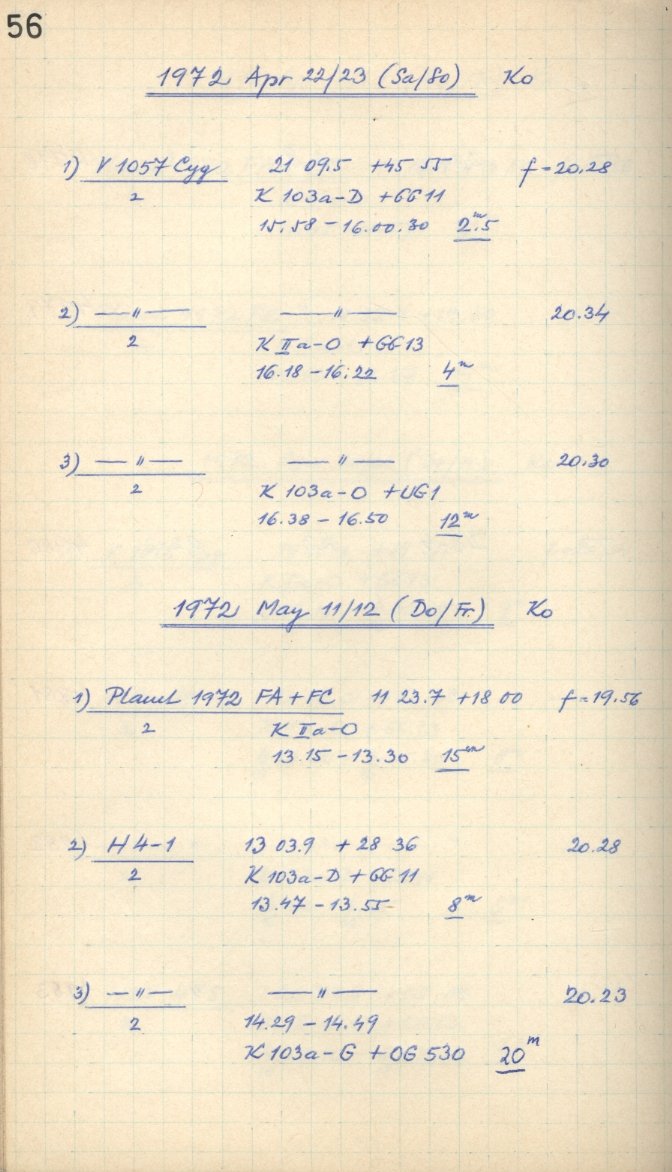 56
1972 Apr 22/23 (Sa/So) Ko
1) V 1057 Cyg 21 09.5 +45 55 f=20.28
2 K 103a-D +GG11
15.58 - 16.00.30 2.ᵐ5
2) — " — — " — 20.34
2 K IIa-O +GG13
16.18 - 16.22 4ᵐ
3) — " — — " — 20.30
2 K 103a-O +UG1
16.38 - 16.50 12ᵐ
1972 May 11/12 (Do/Fr.) Ko
1) Planet 1972 FA + FC 11 23.7 +18 00 f=19.56
2 K IIa-O
13.15 - 13.30 15ᵐ
2) H 4-1 13 03.9 +28 36 20.28
2 K 103a-D +GG11
13.47 - 13.55 8ᵐ
3) — " — — " — 20.23
2 14.29 - 14.49
K 103a-G +OG 530 20ᵐ